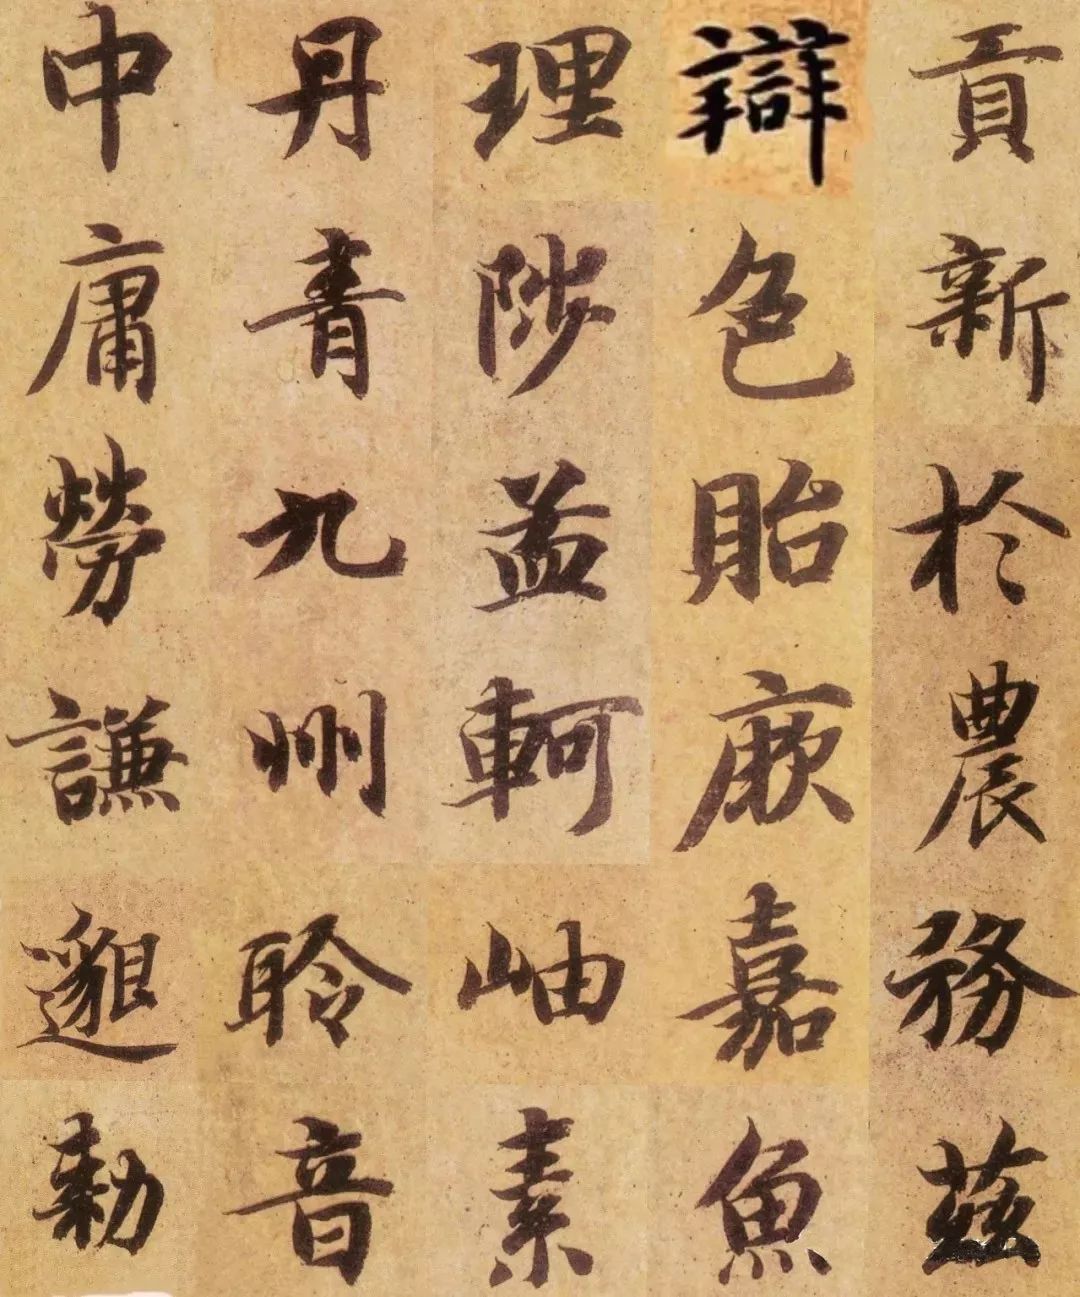 貢新於農務茲
辯色貽厥嘉魚
理陟孟軻岫素
丹青九州聆音
中庸勞謙邈勅